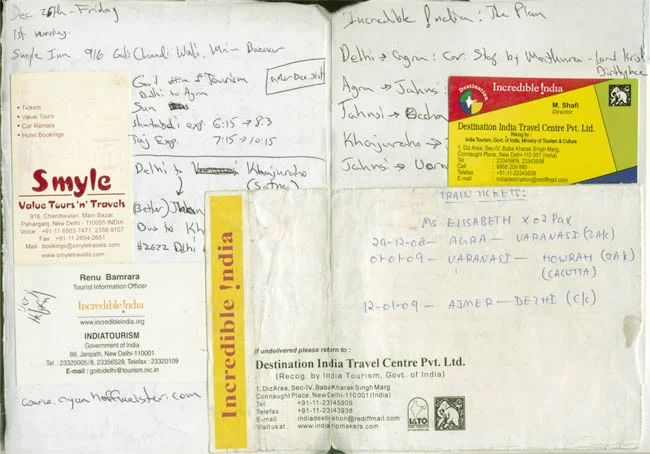 Dec 26th - Friday
1st morning.
Smyle Inn 916 Gali Chandi Wali, Main Bazaar
• Tickets
• Value Tours
• Car Rentals
• Hotel Bookings
Smyle
Value Tours 'n' Travels
916, Chandiwalan, Main Bazar,
Paharganj, New Delhi - 110055 INDIA
Voice : +91-11-6563-7471, 2358-9107
Fax : +91-11-2854-2651
Mail : bookings@smyletravels.com
www.smyletravels.com
Gov't office of Tourism
Delhi to Agra
Sun
Shatabdi exp. 6:15 → 8:3
Taj Exp. 7:15 → 10:15
Delhi → Khanjuraho
(Satna)
Renu Bamrara
Tourist Information Officer
Incredible !ndia
www.incredibleindia.org
INDIATOURISM
Government of India
88, Janpath, New Delhi-110001
Tel.: 23320005/8, 23356529, Telefax : 23320109
E-mail : goitodelhi@tourism.nic.in
www.ryanhoffmeister.com
Incredible !ndia: The Plan
Delhi → Agra: Car. Stop by Manthura - Lord Krish
Birthplace
Agra → Jahnsi:
Jahnsi →
Khanjuraho →
Jahnsi → Varn
Destination
Incredible !ndia
M. Shafi
Director
Destination India Travel Centre Pvt. Ltd.
Recog by :
India Tourism, Govt. of India, Ministry of Tourism & Culture
1, D1Z Area, Sec-IV, Baba Kharak Singh Marg,
Connaught Place, New Delhi-110 001 (India)
Tel : 23345909, 23343938
Cell : 9868 209 890
Telefax : +91-11-23343938
E-mail : indiadestination@rediffmail.com
TRAIN TICKETS:
Ms ELISABETH X 02 PAX
29-12-08 - AGRA - VARANASI (3A/c)
01-01-09 - VARANASI - HOWRAH (2A/c)
(CALCUTTA)
12-01-09 - AJMER - DELHI (C/C)
Incredible !ndia
If undelivered please return to :
Destination India Travel Centre Pvt. Ltd.
(Recog. by India Tourism, Govt. of India)
1, Diz Area, Sec-IV, Baba Kharak Singh Marg
Connaught Place, New Delhi-110 001 (India)
Tel +91-11-23345909
Telefax +91-11-23343938
E-mail indiadestination@rediffmail.com
Visit us at www.indiatripmakers.com
IATO